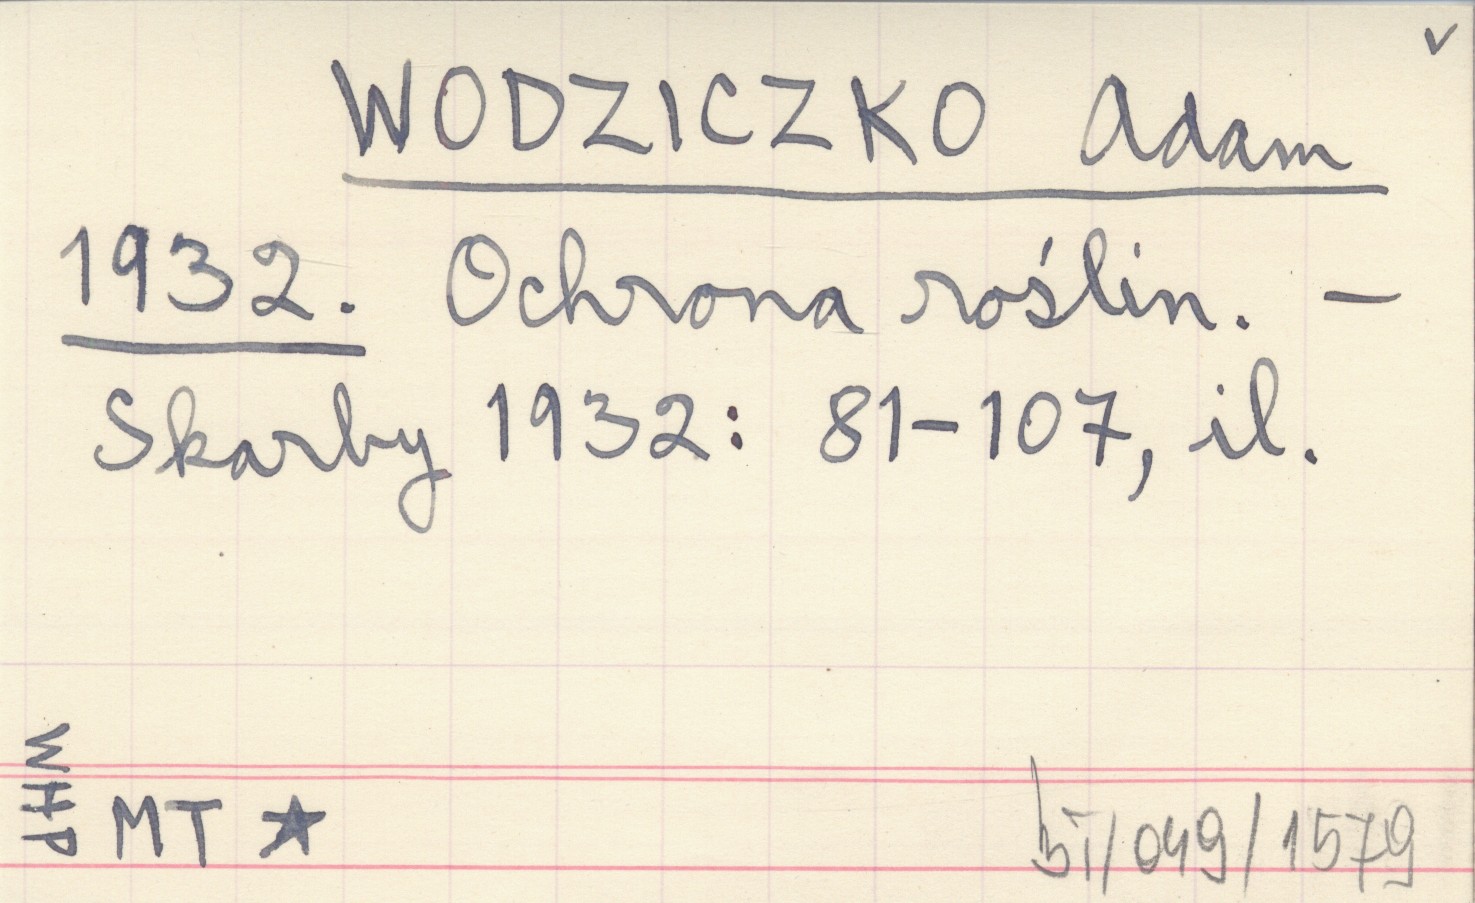 v
WODZICZKO Adam
1932. Ochrona roślin. —
Skarby 1932: 81-107, il.
WHP
MT ★
/049/1579